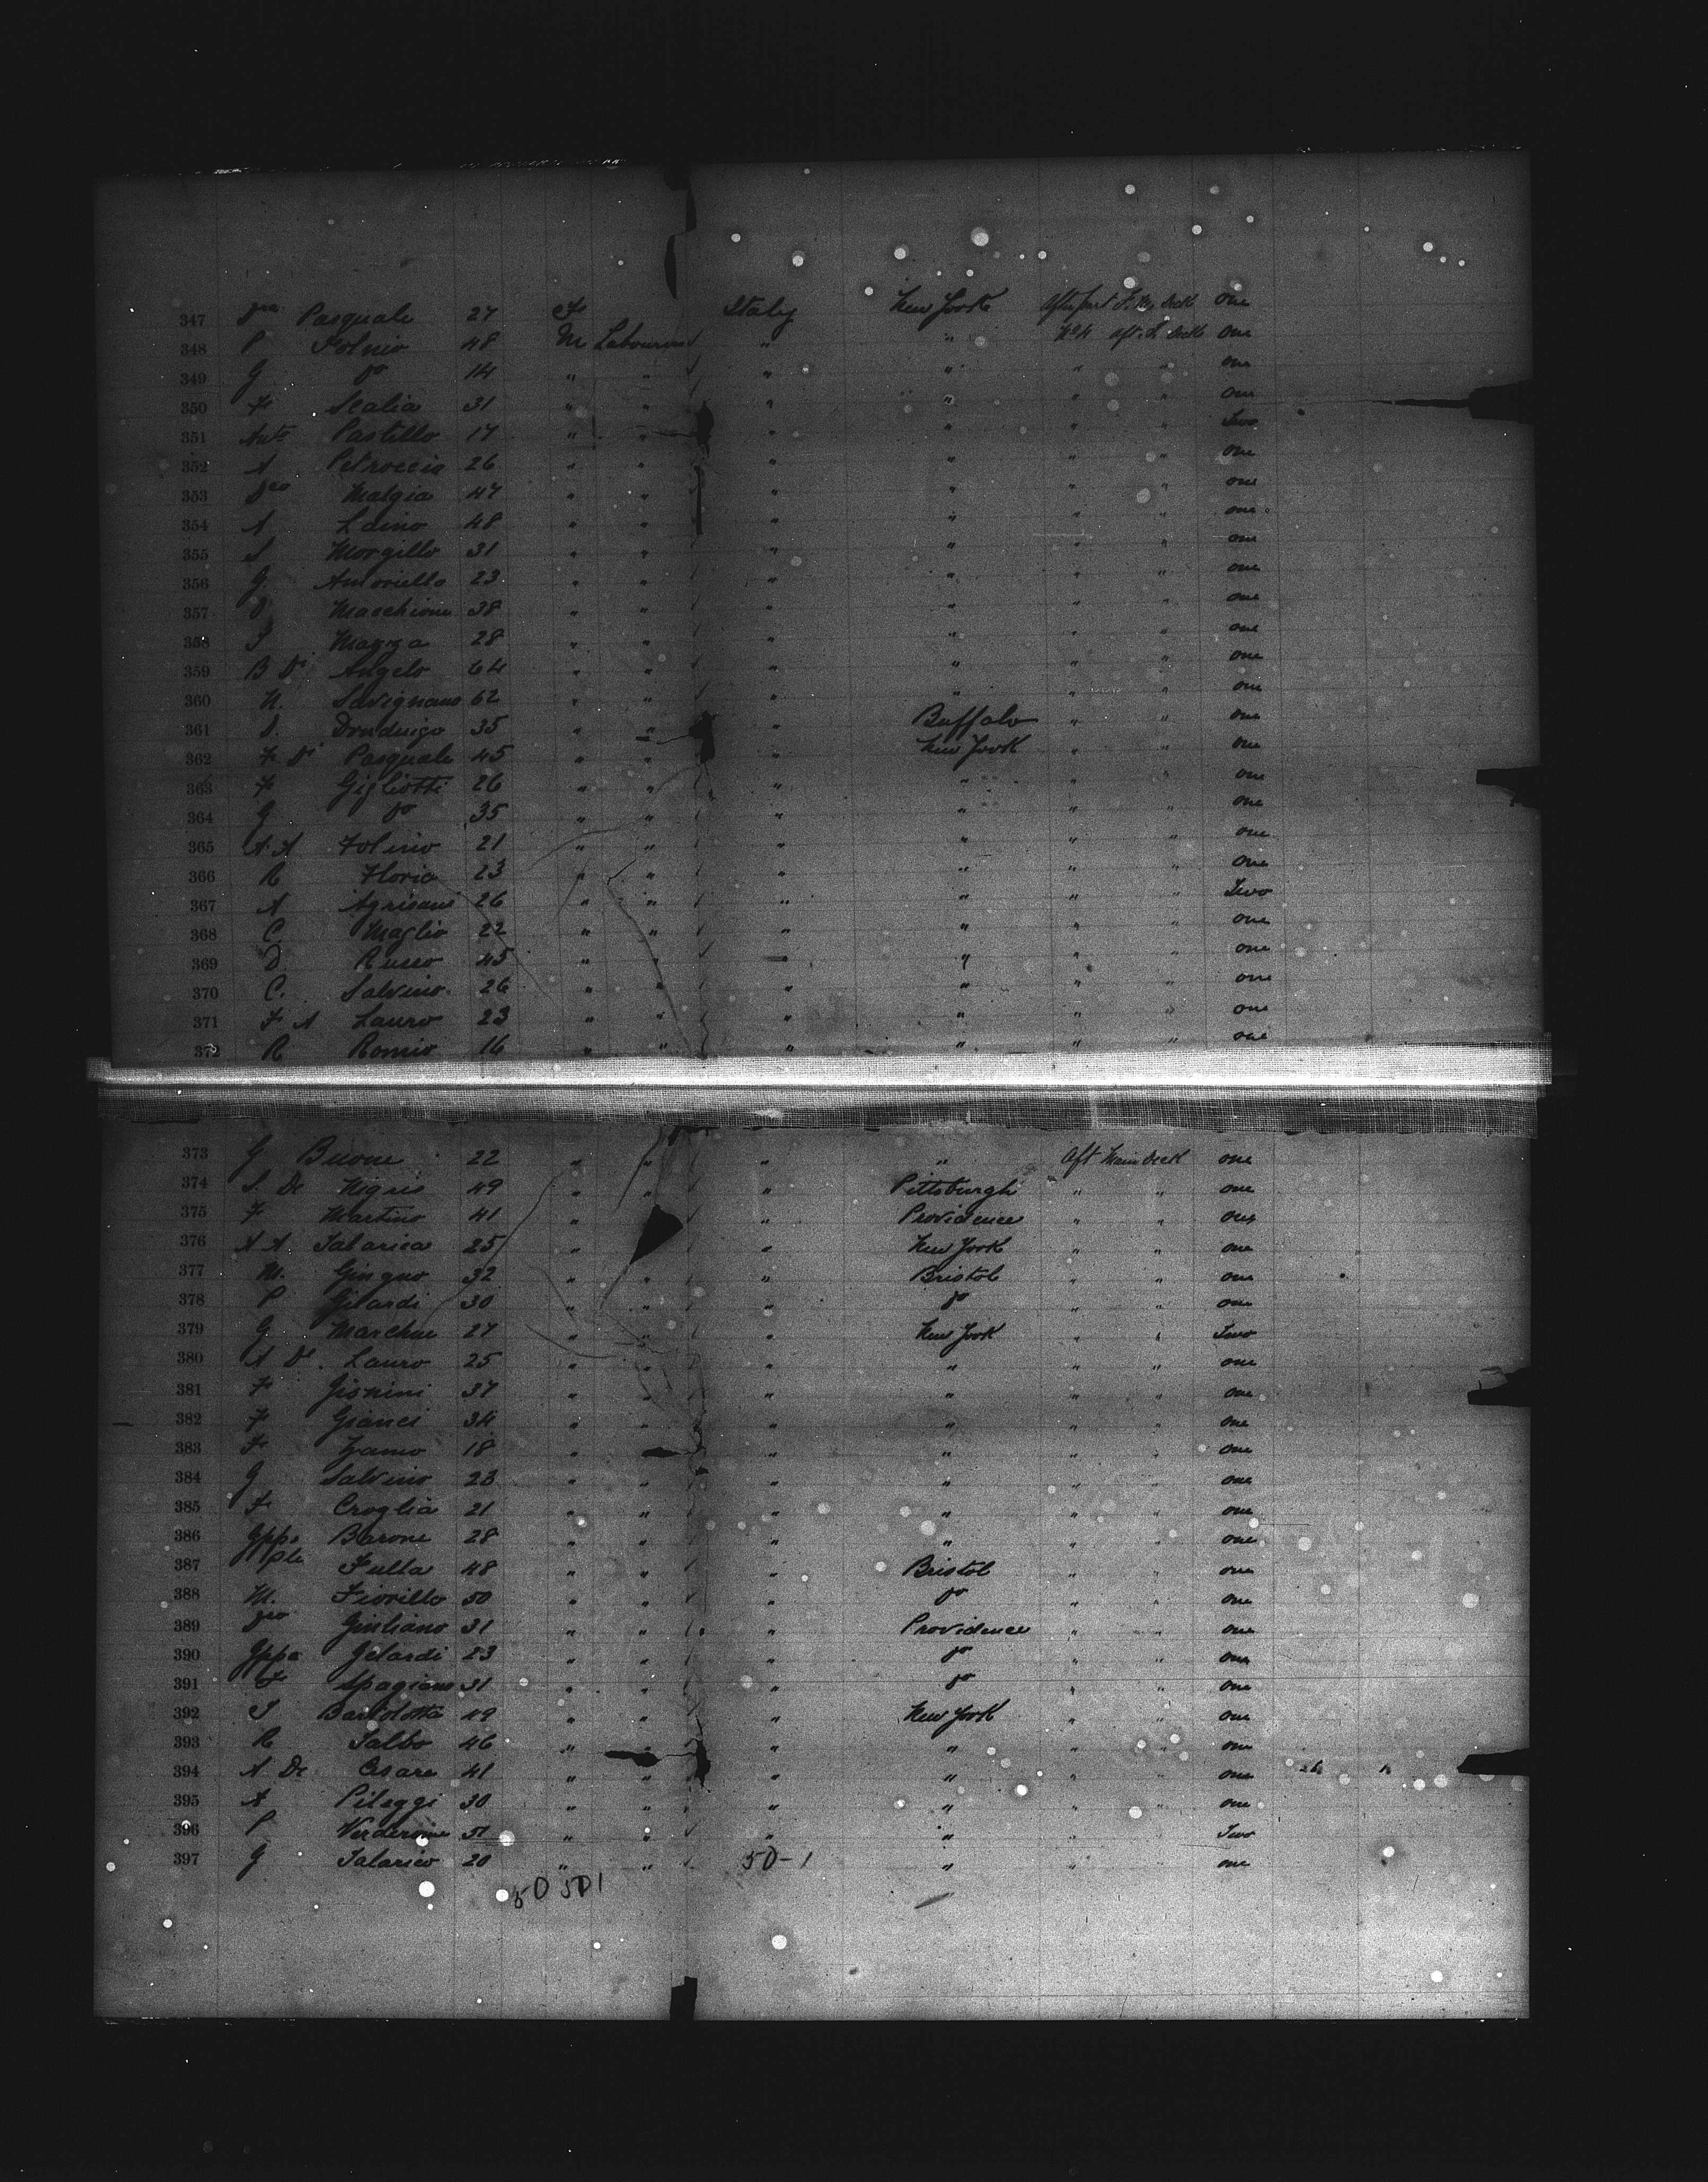 347 Pasquale 27 F Italy New York one
348 P Folino 48 M Labourer " " No 4 aft. L deck one
349 G Do 14 " " " " " " one
350 F Scalia 31 " " " " " " one
351 Anto Pastillo 17 " " " " " " Two
352 A Petroccio 26 " " " " " " one
353 Malgia 47 " " " " " " one
354 A Laino 48 " " " " " " one
355 S Morgillo 31 " " " " " " one
356 G Amoriello 23 " " " " " " one
357 Macchione 38 " " " " " " one
358 Mazza 28 " " " " " " one
359 B Di Angelo 64 " " " " " " one
360 N. Savignano 62 " " " " " " one
361 35 " " " Buffalo " " one
362 F Di Pasquale 45 " " " New York " " one
363 F Gigliotti 26 " " " " " " one
364 G Do 35 " " " " " " one
365 A. A Folino 21 " " " " " " one
366 R Florio 23 " " " " " " one
367 A Agrisani 26 " " " " " " Two
368 C. Maglio 22 " " " " " " one
369 D Russo 45 " " " " " " one
370 C. Salvino 26 " " " " " " one
371 F A Lauro 23 " " " " " " one
372 R Romio 16 " " " " " " one
373 G Buone 22 " " " " Aft Main deck one
374 S. De Nigris 49 " " " Pittsburgh " " one
375 F Martino 41 " " " Providence " " one
376 A A Talarica 25 " " " New York " " one
377 M. 32 " " " Bristol " " one
378 P Gilardi 30 " " " Do " " one
379 G Marchue 27 " " " New York " " Two
380 A De. Lauro 25 " " " " " " one
381 F 37 " " " " " " one
382 F Gianci 34 " " " " " " one
383 F 18 " " " " " " one
384 G Salvino 23 " " " " " " one
385 F Croglia 21 " " " " " " one
386 Gppe Barone 28 " " " " " " one
387 Fulla 48 " " " Bristol " " one
388 M. Fiorillo 50 " " " Do " " one
389 Giuliano 31 " " " Providence " " one
390 Gppe Gelardi 23 " " " Do " " one
391 F Spagiano 31 " " " Do " " one
392 S Bartolotta 49 " " " New York " " one
393 R Salbo 46 " " " " " " one
394 A De Cesare 41 " " " " " " one
395 A Pileggi 30 " " " " " " one
396 P Verderime 51 " " " " " " Two
397 G Talarico 20 " " 50-1 " " " one
50 50 1